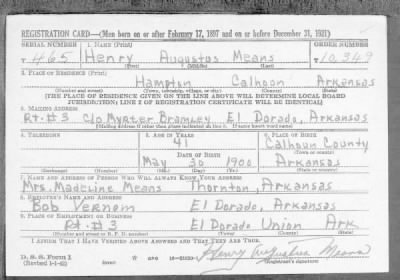 REGISTRATION CARD—(Men born on or after February 17, 1897 and on or before December 31, 1921)
SERIAL NUMBER 1. NAME (Print) ORDER NUMBER
T 465 Henry Augustus Means T 10,349
(First) (Middle) (Last)
2. PLACE OF RESIDENCE (Print)
Hampton Calhoun Arkansas
(Number and street) (Town, township, village, or city) (County) (State)
[THE PLACE OF RESIDENCE GIVEN ON THE LINE ABOVE WILL DETERMINE LOCAL BOARD
JURISDICTION; LINE 2 OF REGISTRATION CERTIFICATE WILL BE IDENTICAL]
3. MAILING ADDRESS
Rt. #3 C/o Myrter Bramley El Dorado, Arkansas
[Mailing address if other than place indicated on line 2. If same insert word same]
4. TELEPHONE 5. AGE IN YEARS 6. PLACE OF BIRTH
41 Calhoun County
DATE OF BIRTH (Town or county)
May 30 1900 Arkansas
(Exchange) (Number) (Mo.) (Day) (Yr.) (State or country)
7. NAME AND ADDRESS OF PERSON WHO WILL ALWAYS KNOW YOUR ADDRESS
Mrs. Madeline Means Thornton, Arkansas
8. EMPLOYER'S NAME AND ADDRESS
Bob Vernom El Dorado, Arkansas
9. PLACE OF EMPLOYMENT OR BUSINESS
Rt. #3 El Dorado Union Ark
(Number and street or R. F. D. number) (Town) (County) (State)
I AFFIRM THAT I HAVE VERIFIED ABOVE ANSWERS AND THAT THEY ARE TRUE.
D. S. S. Form 1
(Revised 1-1-42) (over) Henry Augustus Means
(Registrant's signature)